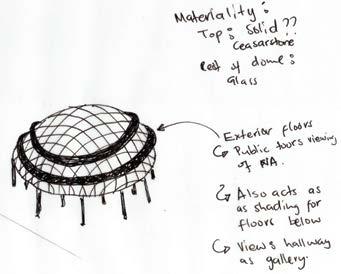 Materiality:
Top: Solid??
Ceasarstone
Rest of dome:
Glass
Exterior floors
↳ Public tours viewing
of NA.
↳ Also acts as
as shading for
floors below
↳ Views hallway
as gallery.